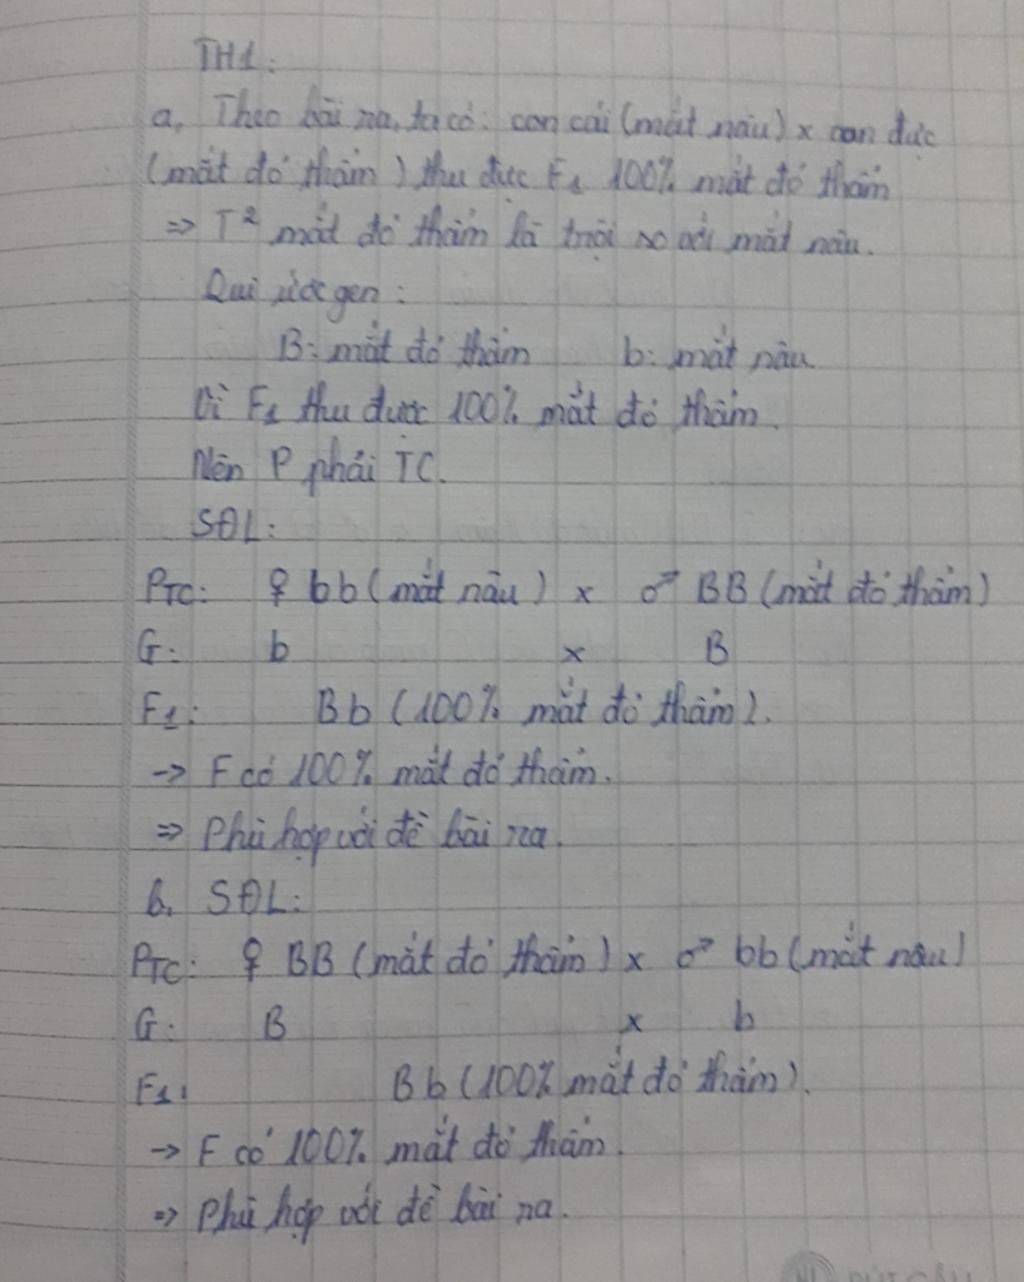 TH1:
a, Theo bài ra, ta có: con cái (mắt nâu) x con đực
(mắt đỏ thẫm) thu đực F1 100% mắt đỏ thẫm
=> T² mắt đỏ thẫm là trội so với mắt nâu.
Qui ước gen:
B: mắt đỏ thẫm b: mắt nâu
Vì F1 thu được 100% mắt đỏ thẫm.
Nên P phải TC.
SĐL:
PTC: ♀ bb (mắt nâu) x ♂ BB (mắt đỏ thẫm)
G: b x B
F1: Bb (100% mắt đỏ thẫm).
-> F có 100% mắt đỏ thẫm.
=> Phù hợp với đề bài ra.
b, SĐL:
PTC: ♀ BB (mắt đỏ thẫm) x ♂ bb (mắt nâu)
G: B x b
F1: Bb (100% mắt đỏ thẫm).
-> F có 100% mắt đỏ thẫm.
=> Phù hợp với đề bài ra.